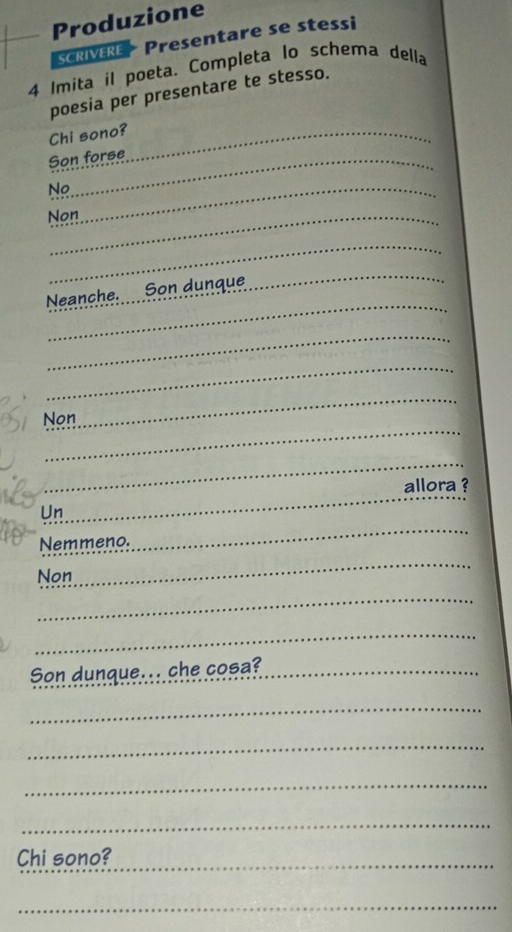 Produzione
SCRIVERE Presentare se stessi
4 Imita il poeta. Completa lo schema della
poesia per presentare te stesso.
Chi sono?
Son forse
No
Non
Neanche. Son dunque
Non
Un allora ?
Nemmeno.
Non
Son dunque... che cosa?
Chi sono?